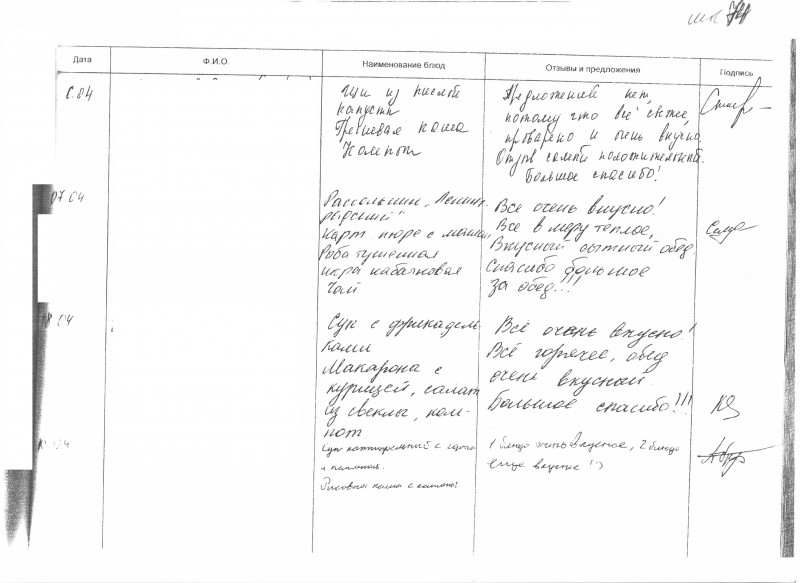 Дата Ф.И.О. Наименование блюд Отзывы и предложения Подпись
6.04
Щи из кислой
капусты
Гречневая каша
Компот
Предложений нет,
потому что всё свежее,
проварено и очень вкусно
Отзыв самый положительный.
Большое спасибо!
07 04
Рассольник „Ленинг
радский"
Карт пюре с маслом
Рыба тушенная
Икра кабачковая
Чай
Все очень вкусно!
Все в меру теплое,
Вкусный сытный обед
Спасибо большое
за обед!!!
8 04
Суп с фрикадель
ками
Макароны с
курицей, салат
из свеклы, ком-
пот
Всё очень вкусно!
Всё горячее, обед
очень вкусный.
Большое спасибо!!!
04
Суп картофельный с
Рисовая каша с
1 блюдо очень вкусное, 2 блюдо
еще вкуснее !:)